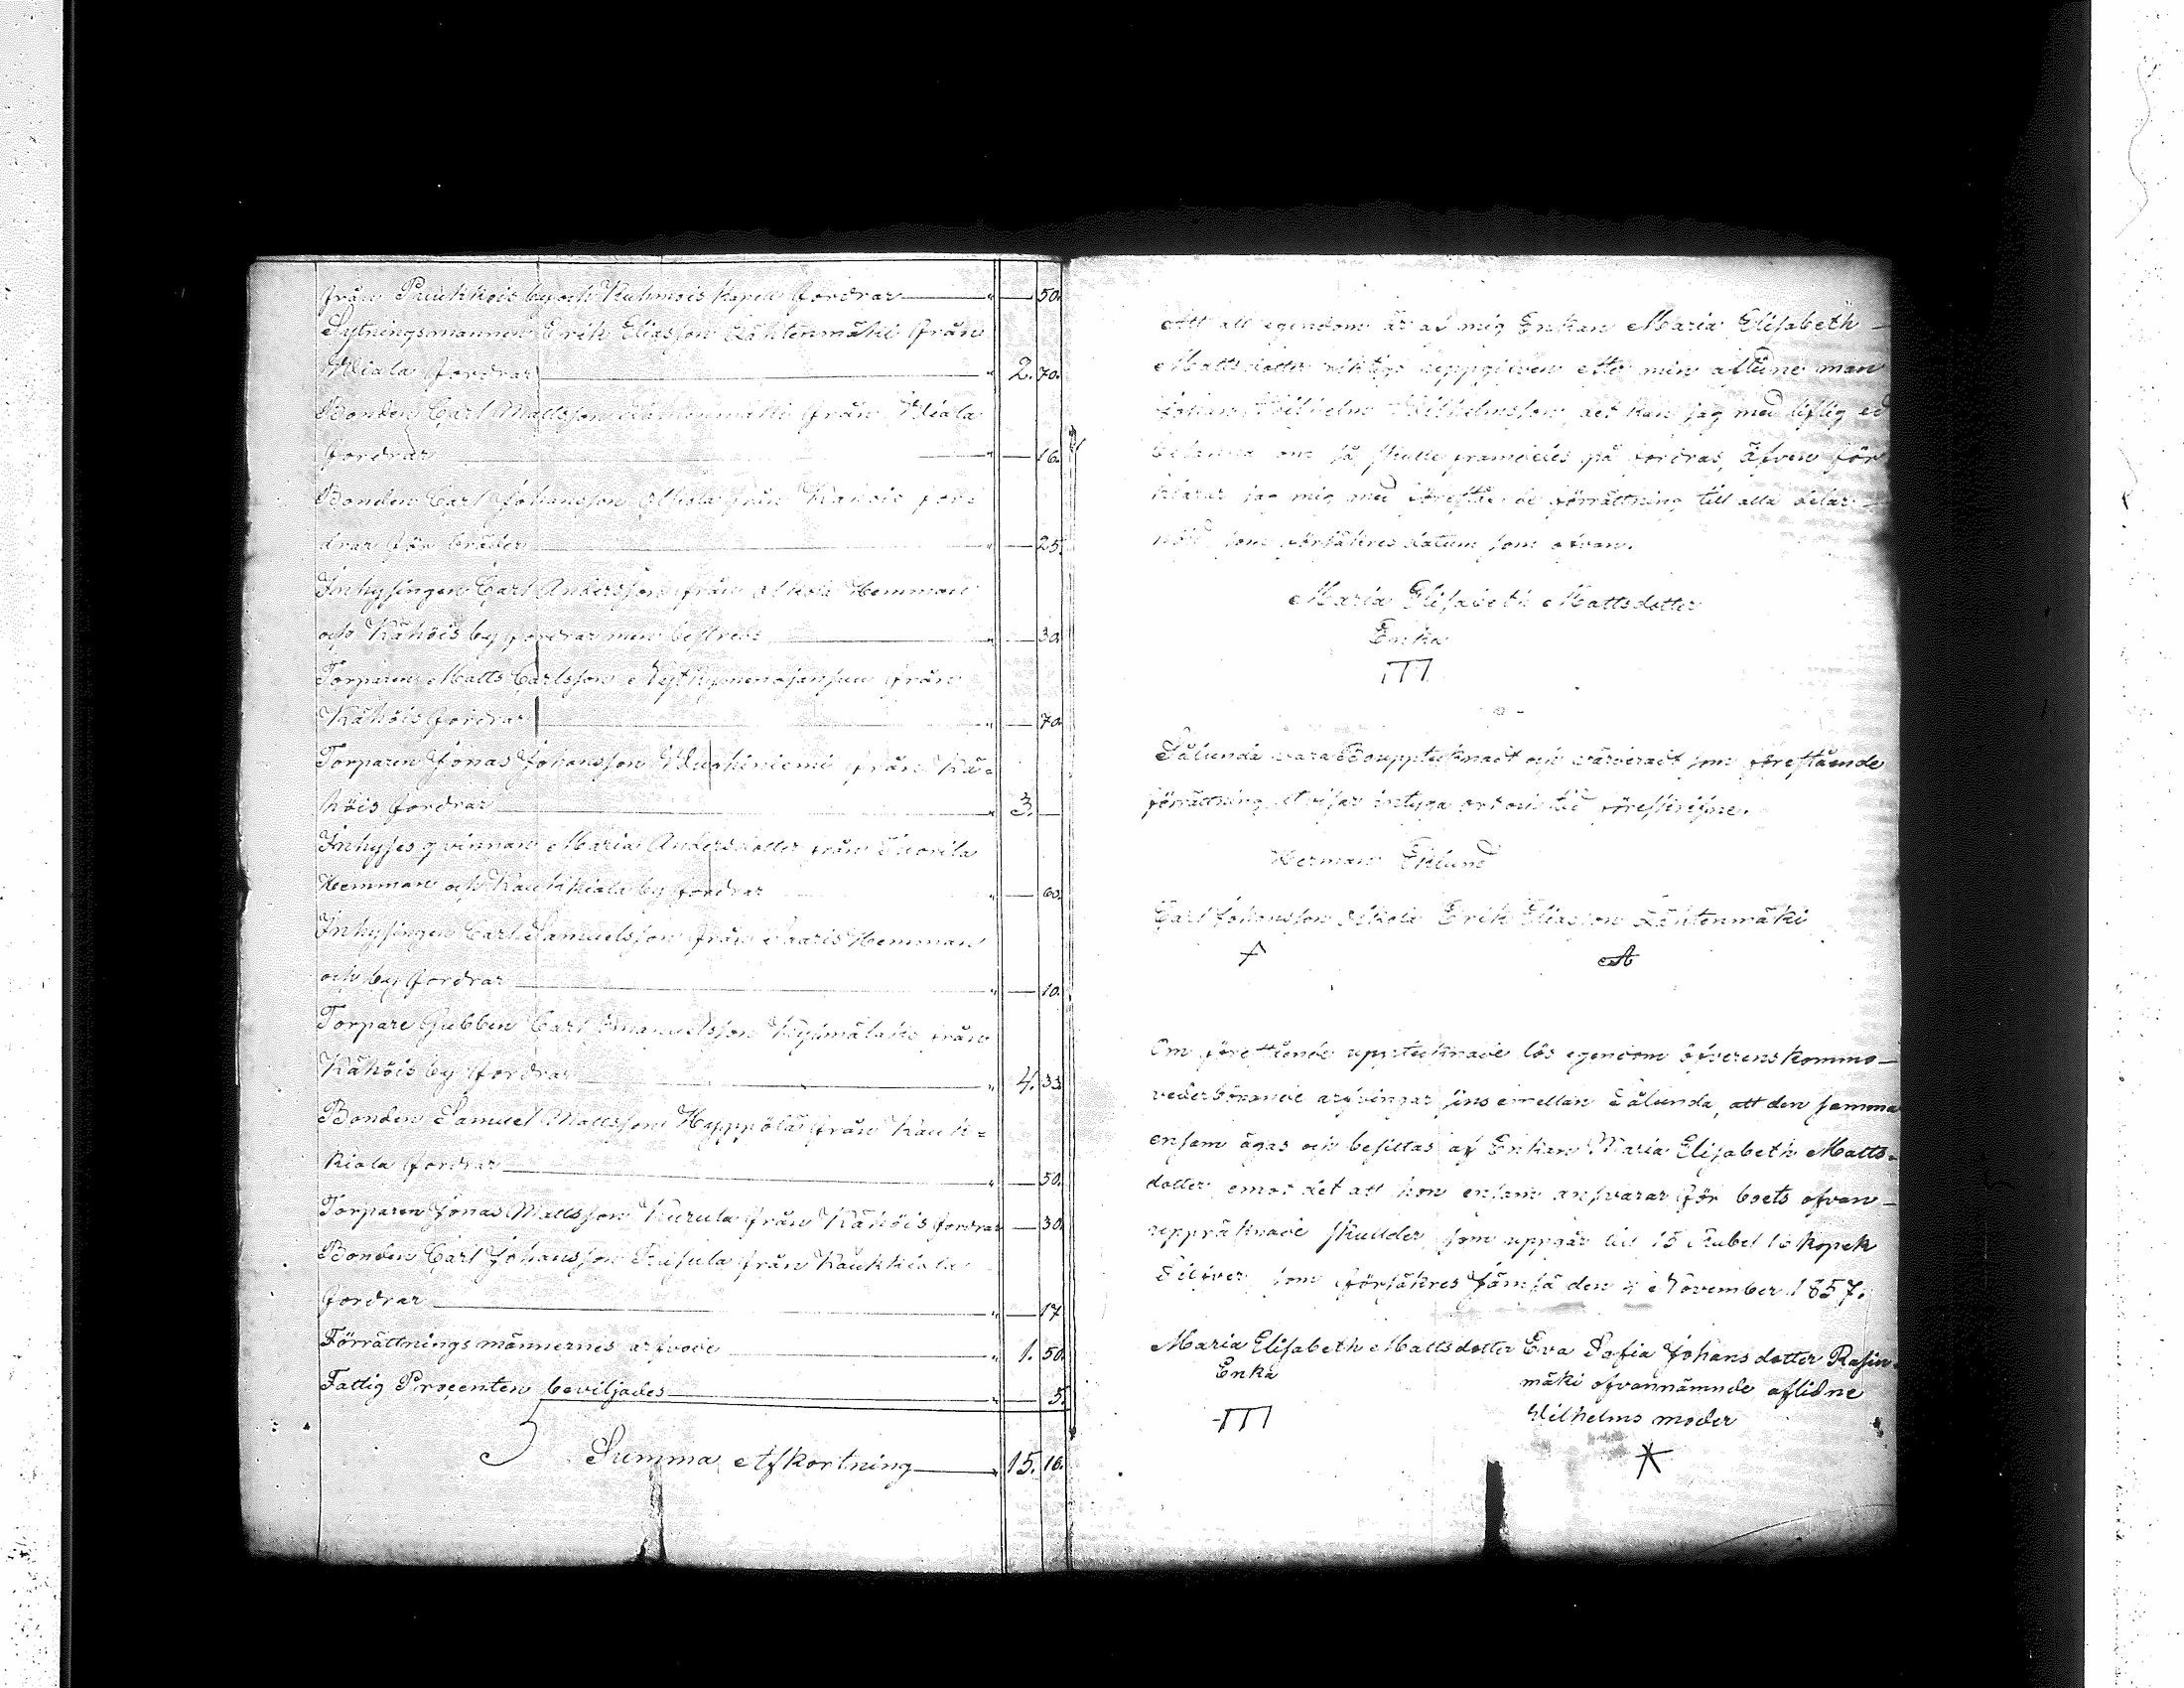 från Puukkois by och Kuhmois kapell fordrar — " — 50.
Sytningsmannen Erik Eliasson Lähtenmäki från
Wiala fordrar — " 2. 70.
Bonden Carl Mattsson Lähtenmäki från Wiala
fordrar — " — 16.
Bonden Carl Johansson från Kähöis for=
drar för bräder — " — 25.
Inhysingen Carl Andersson från Hemman
och Kähöis by fordrar men bestreds — " — 30.
Torparen Matts Carlsson från
Kähöis fordrar — " — 70.
Torparen Jonas Johansson Wuohiniemi från Kä=
höis fordrar — " 3. —
Inhyses qvinnan Maria Andersdotter från
Hemman och Kaukkiala by fordrar — " — 60.
Inhysingen Carl Samuelsson från Saaris Hemman
och by fordrar — " — 10.
Torpare Gubben Carl från
Kähöis by fordrar — " 4. 33.
Bonden Samuel Mattsson Hyppölä från Kauk=
kiala fordrar — " — 50.
Torparen Jonas Mattsson Kurula från Kähöis fordrar — 30.
Bonden Carl Johansson Rusula från Kaukkiala
fordrar — " — 17.
Förrättningsmännernes arfvode — " 1. 50.
Fattig Procenten beviljades — " — 5.
Summa Afkortning — " 15. 16.
Att all egendom är af mig Enkan Maria Elisabeth
Mattsdotter riktigt uppgifven efter min aflidne man
Johan Wilhelm Wilhelmsson, det kan jag med liflig ed
om så skulle framdeles på fordras, äfven för
klarar jag mig med förestående förrättning till alla delar
nöjd som försäkres datum som ofvan.
Maria Elisabeth Mattsdotter
Enka
TTT
Sålunda vara Bouppteknadt och värderadt som förestående
förrättning utvisar intyga ort och tid föreskrifne.
Herman Eklund
Carl Johansson Erik Eliasson Lähtenmäki
A
Om förestående uppteknade lös egendom öfverenskommo
vederbörande arfvingar sins emellan Sålunda, att den samma
ensam ägas och besittas af Enkan Maria Elisabeth Matts=
dotter emot det att hon ensam ansvarar för boets ofvan
uppräknade skullder, som uppgår till 15 Rubel 16 kopek
Silfver som försäkres Jämsä den 4 November 1857.
Maria Elisabeth Mattsdotter Eva Sofia Johansdotter Rasin=
Enka mäki ofvannämnde aflidne
TTT Wilhelms moder